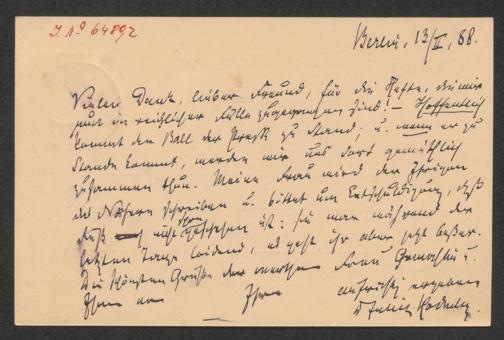 J. No 64892
Berlin, 13/II, 88.
Vielen Dank, lieber Freund, für die Hefte, die mir
nun in reichlicher Fülle zugegangen sind! – Hoffentlich
kommt der Ball der Presse zu Stand; u. wenn er zu
Stande kommt, werden wir uns dort gemüthlich
zusammen thun. Meine Frau wird der Ihrigen
des Näheren schreiben u. bittet um Entschuldigung, daß
dieß nicht schon geschehen ist: sie war während der
letzten Tage leidend, es geht ihr aber jetzt besser.
Die schönsten Grüße der verehrten Frau Gemahlin u.
Ihnen von Ihrem aufrichtig ergebenen